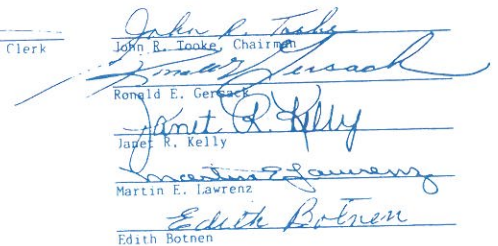 John R. Tooke
Clerk John R. Tooke, Chairman
Ronald E. Gersack
Ronald E. Gersack
Janet R. Kelly
Janet R. Kelly
Martin E Lawrenz
Martin E. Lawrenz
Edith Botnen
Edith Botnen